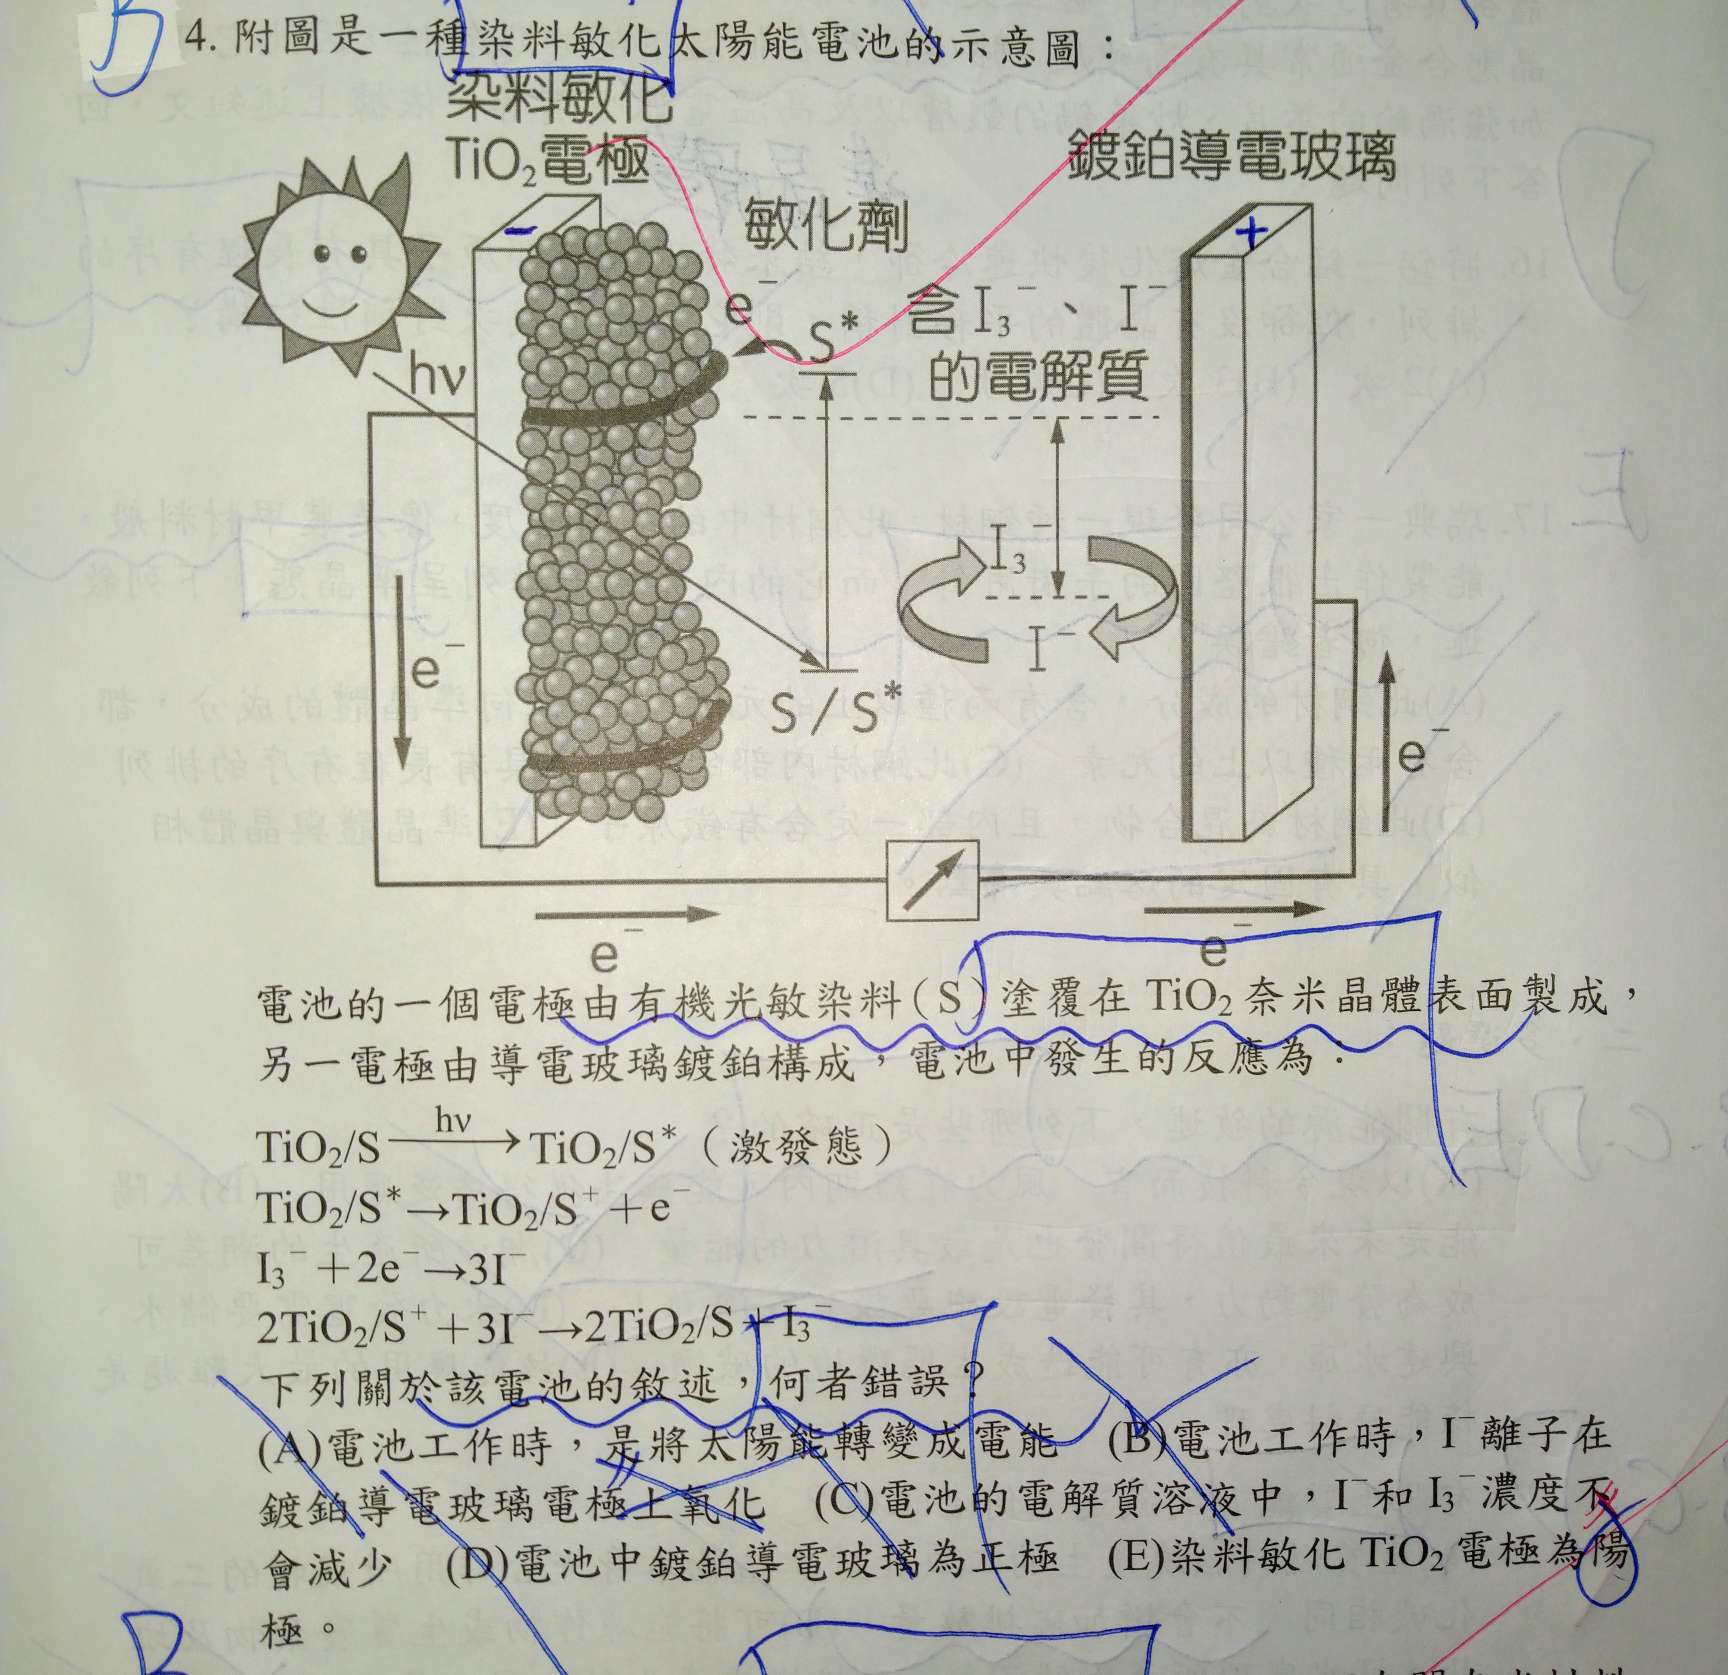 B
4. 附圖是一種染料敏化太陽能電池的示意圖：
染料敏化
TiO₂電極
鍍鉑導電玻璃
敏化劑
−
+
e⁻
S*
含 I₃⁻、I⁻
的電解質
hν
I₃⁻
I⁻
e⁻
S/S*
e⁻
e⁻
e⁻
電池的一個電極由有機光敏染料(S)塗覆在 TiO₂ 奈米晶體表面製成，
另一電極由導電玻璃鍍鉑構成，電池中發生的反應為：
TiO₂/S —hν→ TiO₂/S*（激發態）
TiO₂/S*→TiO₂/S⁺＋e⁻
I₃⁻＋2e⁻→3I⁻
2TiO₂/S⁺＋3I⁻→2TiO₂/S＋I₃⁻
下列關於該電池的敘述，何者錯誤？
(A)電池工作時，是將太陽能轉變成電能　(B)電池工作時，I⁻離子在
鍍鉑導電玻璃電極上氧化　(C)電池的電解質溶液中，I⁻和 I₃⁻濃度不
會減少　(D)電池中鍍鉑導電玻璃為正極　(E)染料敏化 TiO₂ 電極為陽
極。
B